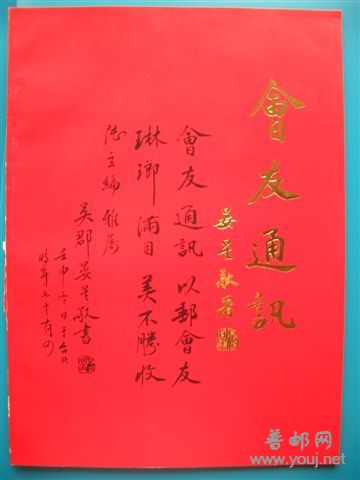 會友通訊
晏星敬署
會友通訊以郵會友
琳瑯滿目美不勝收
陸主編雅屬
吳郡晏星敬書
壬申冬日于台北
時年七十有四
普邮网
www.youj.net